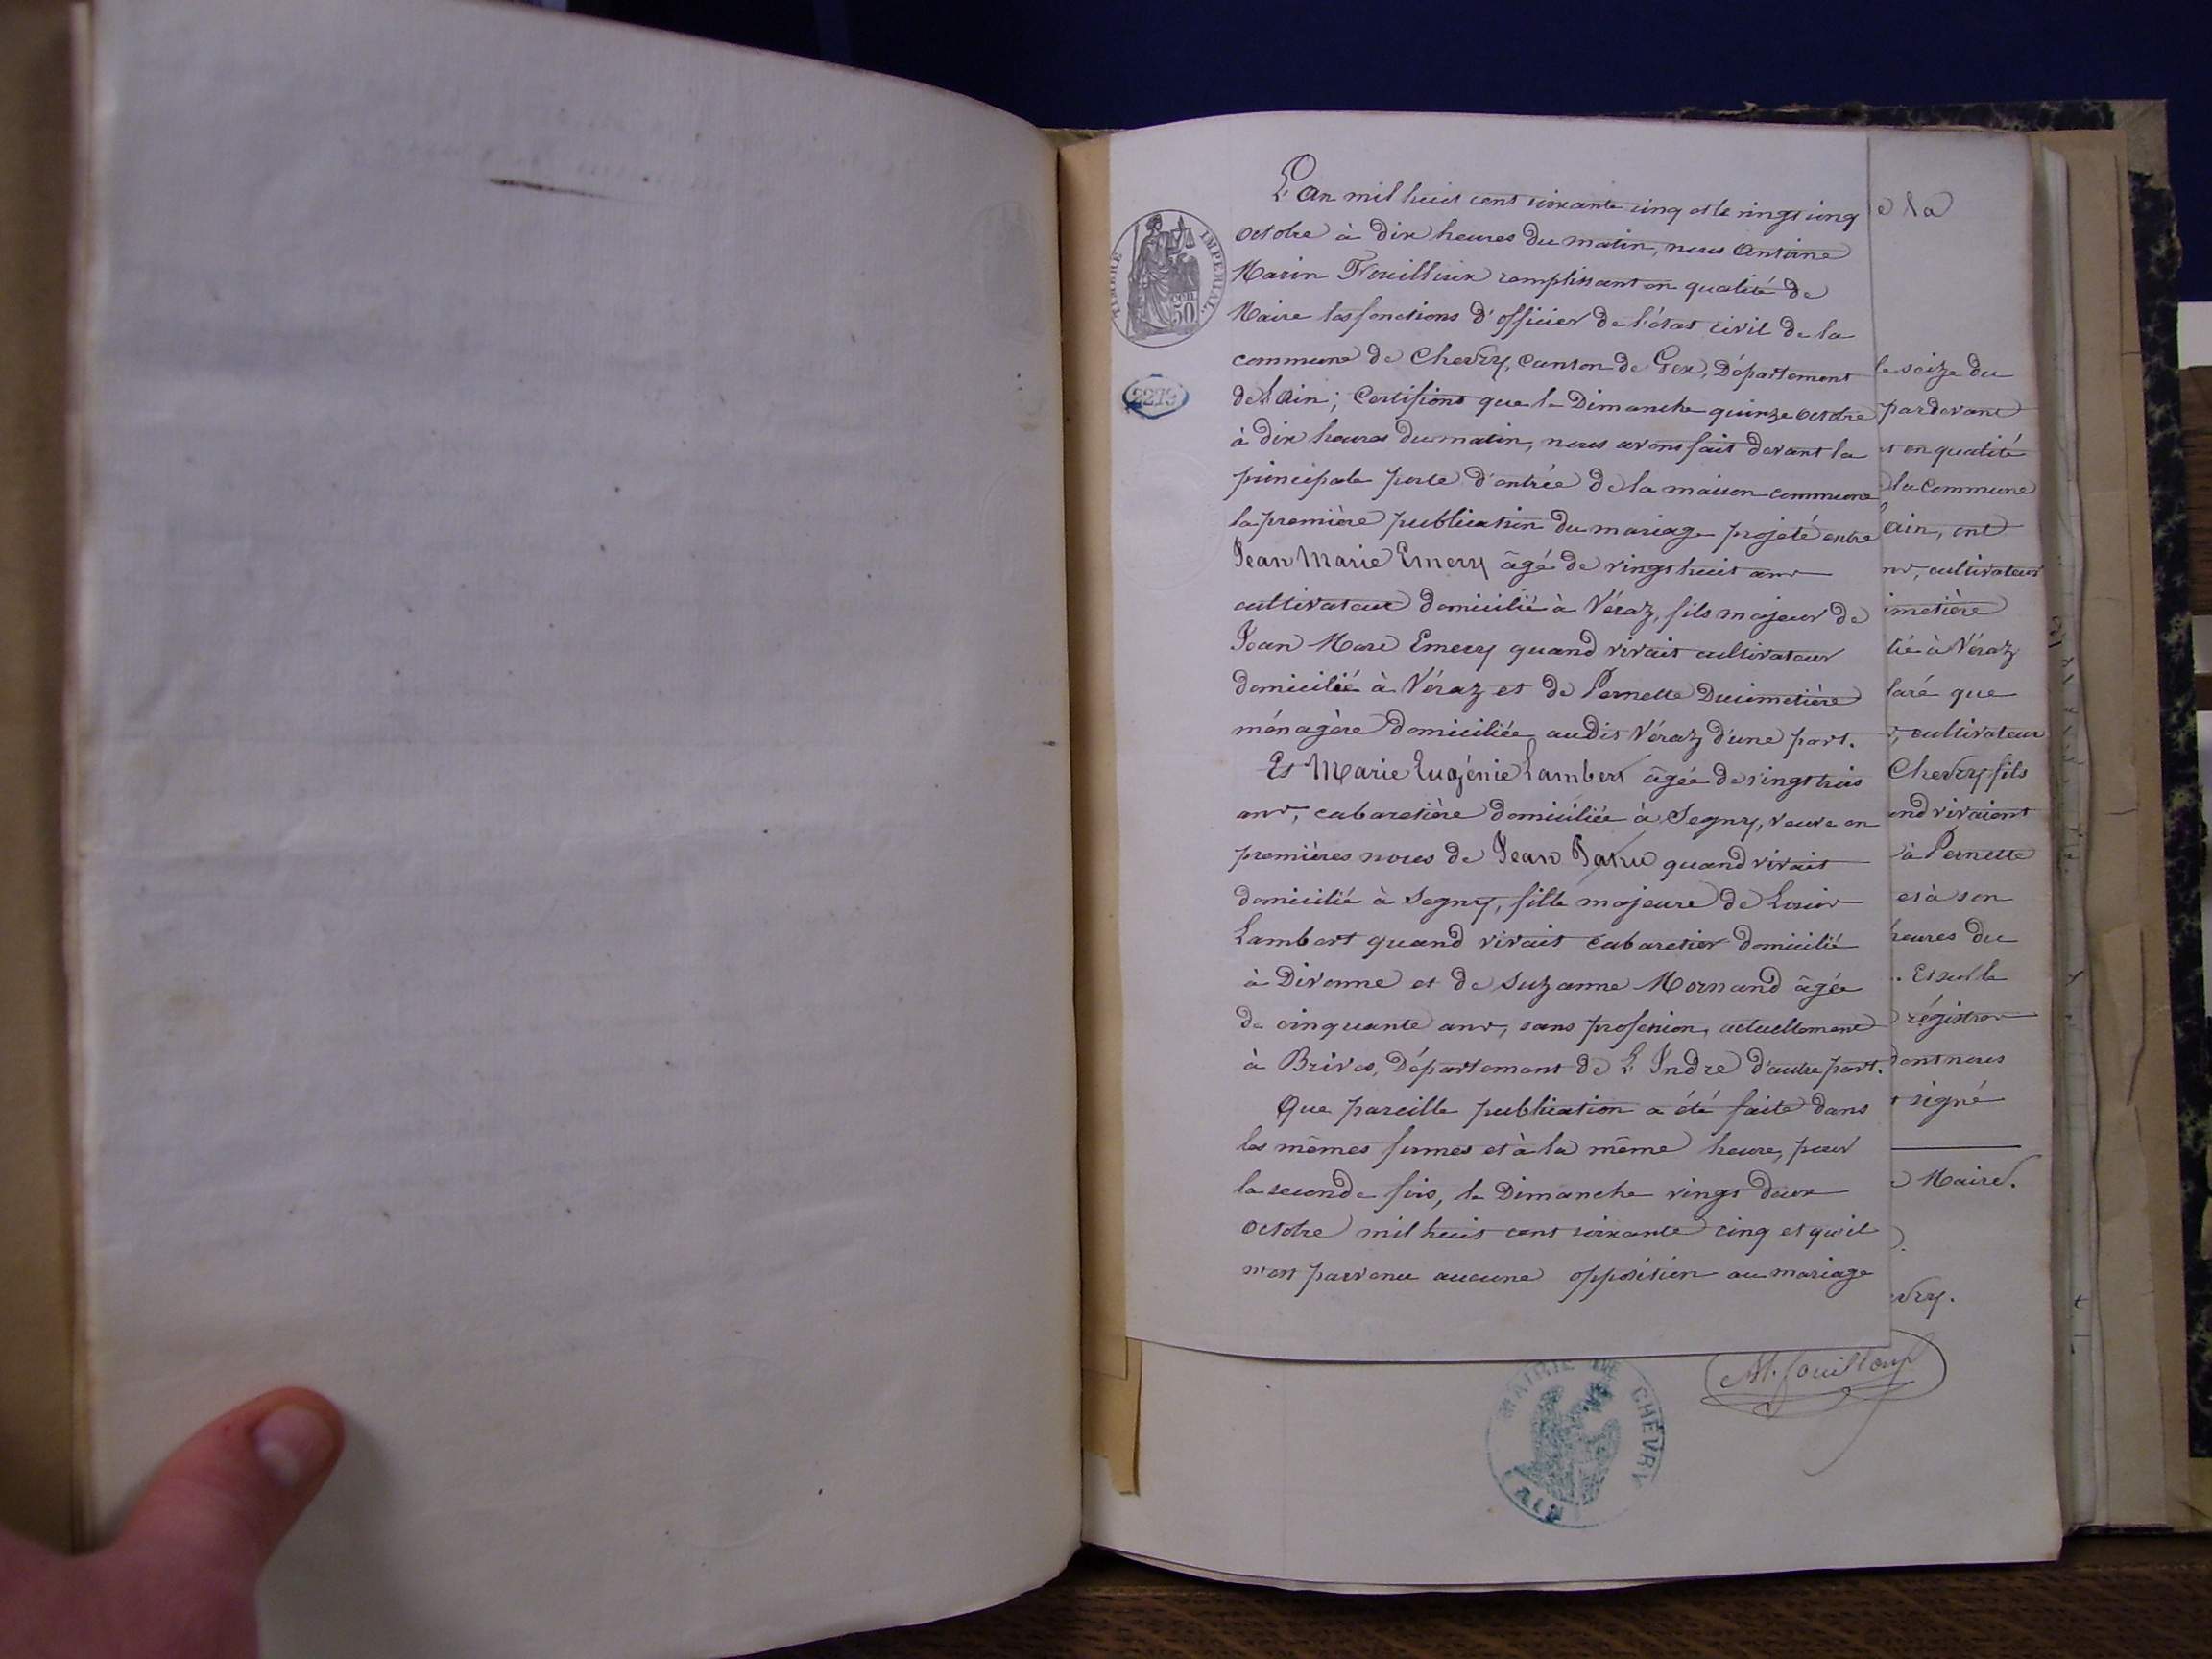 L'an mil huit cent soixante cinq et le vingt cinq
octobre à dix heures du matin, nous Antoine
Marin Fouillieux remplissant en qualité de
Maire les fonctions d'officier de l'état civil de la
commune de Chevry, canton de Gex, Département
de l'ain; Certifions que le Dimanche quinze octobre
à dix heures du matin, nous avons fait devant la
principale porte d'entrée de la maison commune
la première publication du mariage projeté entre
Jean Marie Emery âgé de vingt huit ans
cultivateur domicilié à Véraz, fils majeur de
Jean Marc Emery quand vivait cultivateur
domicilié à Véraz et de Pernette Ducimetière
ménagère domiciliée audit Véraz d'une part.
Et Marie Eugénie Lambert âgée de vingt trois
ans, cabaretière domiciliée à Segny, veuve en
premières noces de Jean quand vivait
domicilié à Segny, fille majeure de Louis
Lambert quand vivait cabaretier domicilié
à Divonne et de Suzanne Mornand âgée
de cinquante ans, sans profession, actuellement
à Brives, Département de L'Indre d'autre part.
Que pareille publication a été faite dans
les mêmes formes et à la même heure, pour
la seconde fois, le Dimanche vingt deux
octobre mil huit cent soixante cinq et qu'il
n'est parvenu aucune opposition au mariage
TIMBRE IMPERIAL
50
2279
e la
le seize du
par devant
et en qualité
la commune
ain, ont
cultivateur
imetière
lié à Véraz
laré que
, cultivateur
Chevry fils
and vivaient
à Pernette
et à son
heures du
. Et sur le
régistres
dont nous
signé
Maire.
vry.
M. fouilloux
MAIRIE DE CHEVRY
AIN